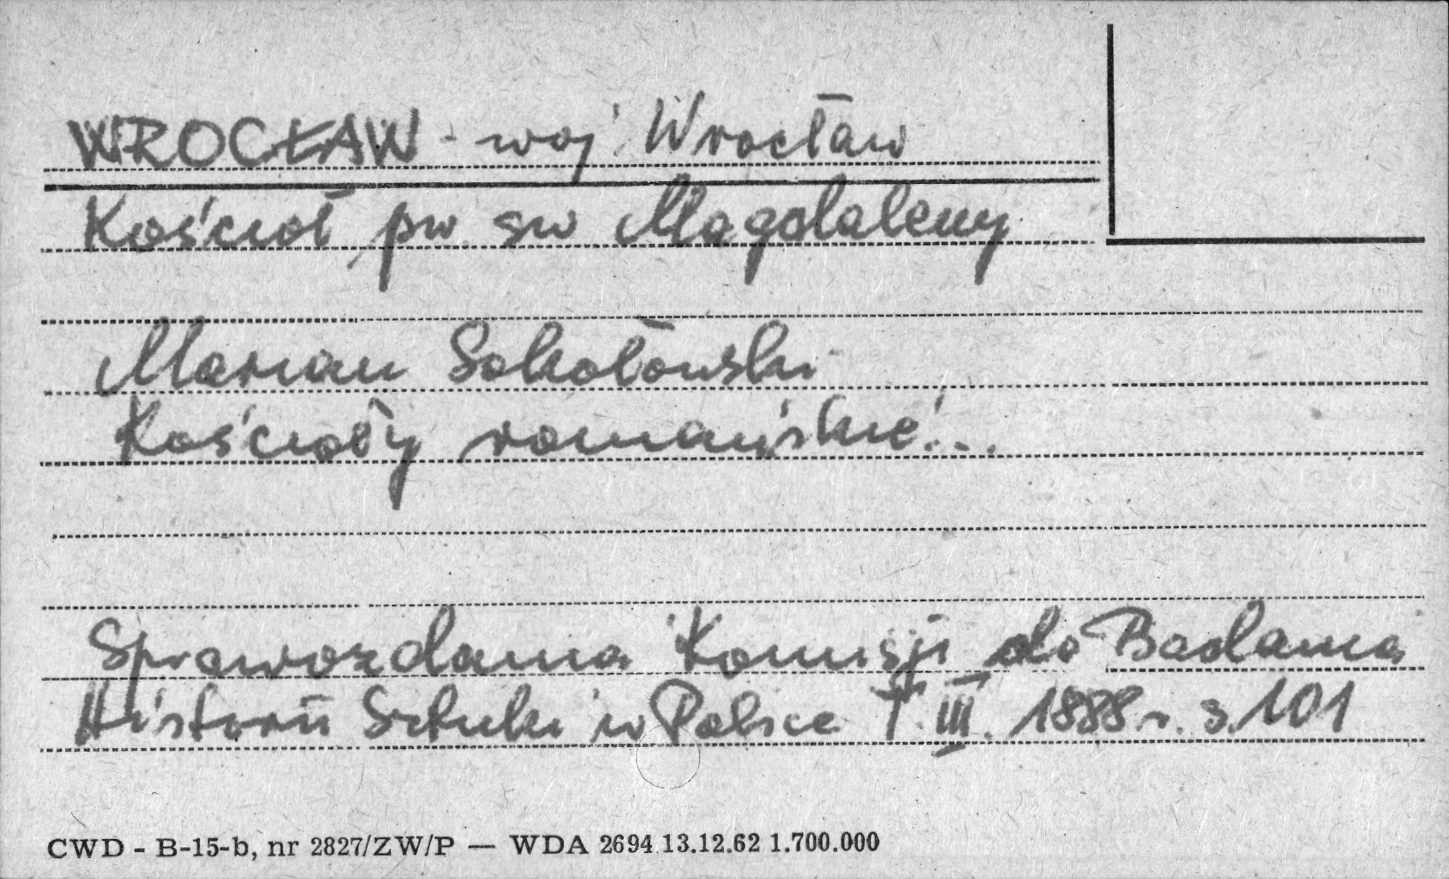 WROCŁAW - woj. Wrocław
Kościół pw. św Magdaleny
Marian Sokołowski
Kościoły romańskie...
Sprawozdania Komisji do Badania
Historii Sztuki w Polsce T. III. 1888 r. s. 101
CWD - B-15-b, nr 2827/ZW/P — WDA 2694 13.12.62 1.700.000